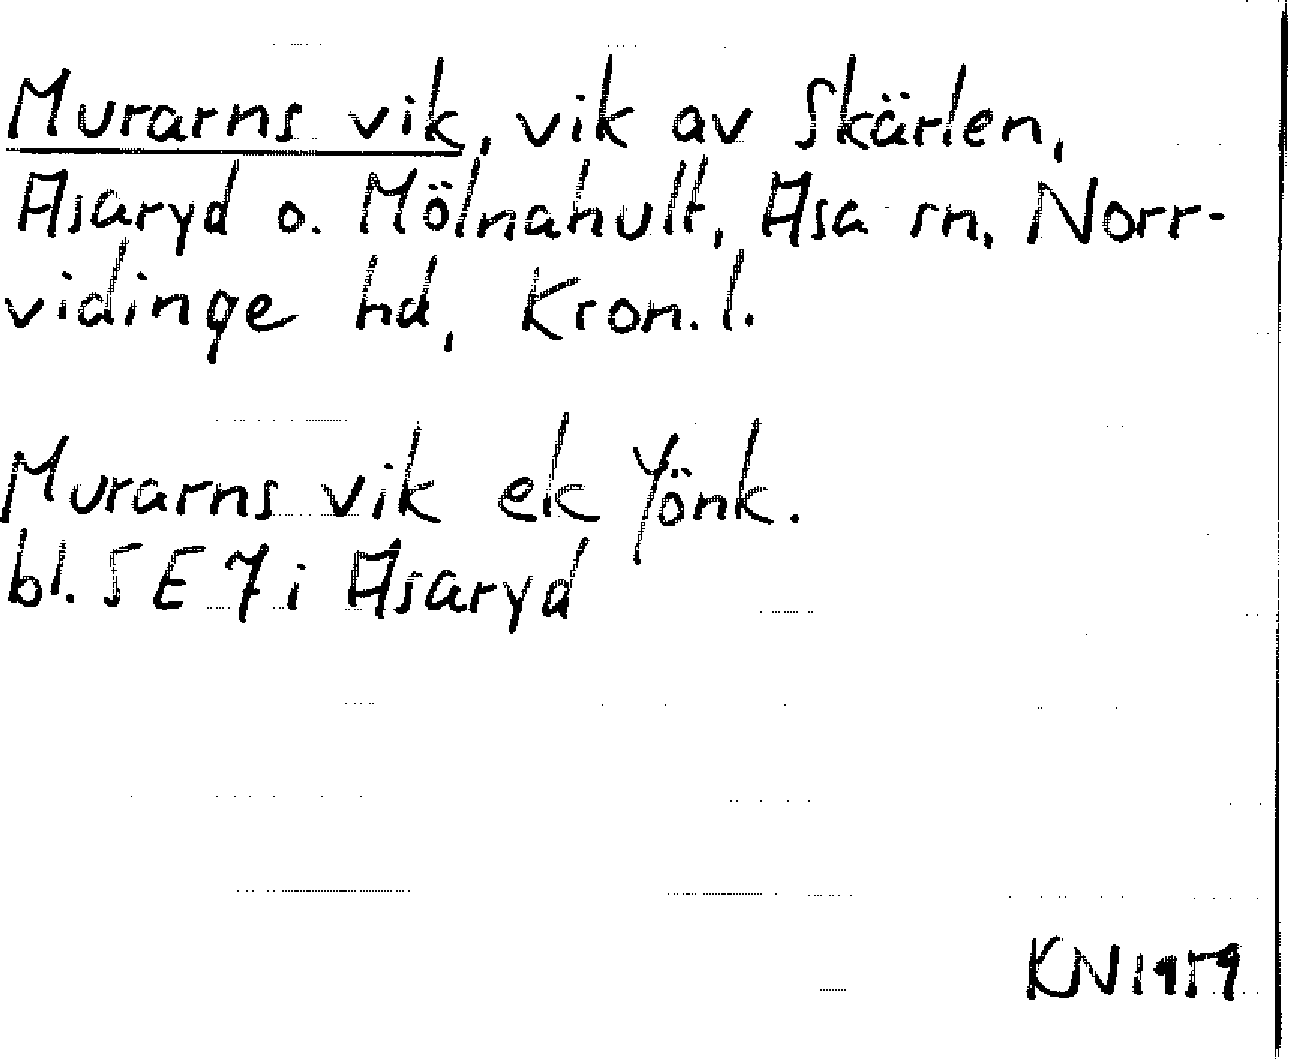 Murarns vik, vik av Skärlen,
Asaryd o. Mölnahult, Asa sn, Norr-
vidinge hd, Kron.l.
Murarns vik ek Jönk.
bl. 5 E 7 i Asaryd
KN 1959